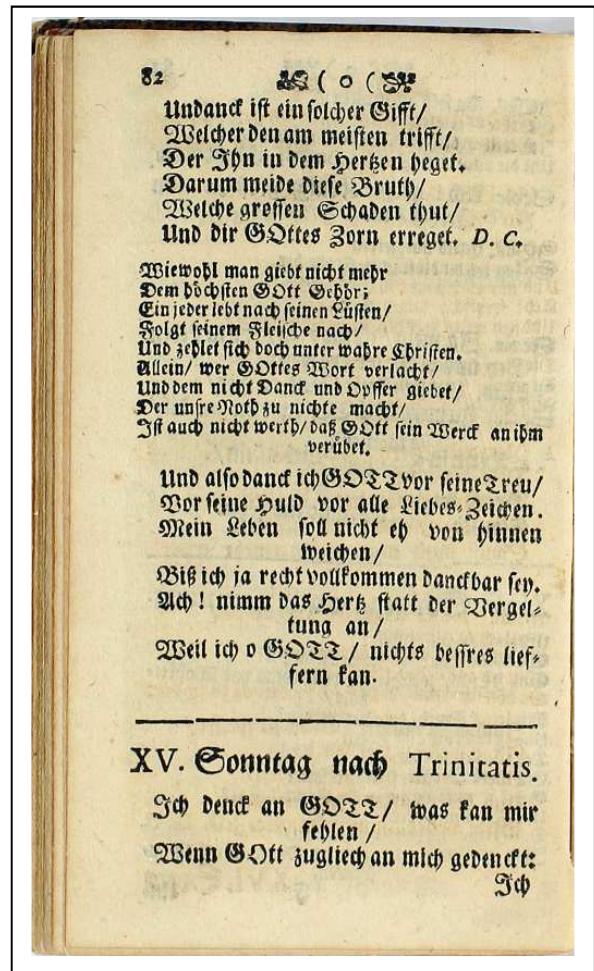 82 ( o (
Undanck ist ein solcher Gifft/
Welcher den am meisten trifft/
Der Ihn in dem Hertzen heget.
Darum meide diese Bruth/
Welche grossen Schaden thut/
Und dir GOttes Zorn erreget. D. C.
Wiewohl man giebt nicht mehr
Dem höchsten GOtt Gehör;
Ein jeder lebt nach seinen Lüsten/
Folgt seinem Fleische nach/
Und zehlet sich doch unter wahre Christen.
Allein/ wer GOttes Wort verlacht/
Und dem nicht Danck und Opffer giebet/
Der unsre Noth zu nichte macht/
Ist auch nicht werth/ daß GOtt sein Werck an ihm
verübet.
Und also danck ich GOTT vor seine Treu/
Vor seine Huld vor alle Liebes-Zeichen.
Mein Leben soll nicht eh von hinnen
weichen/
Biß ich ja recht vollkommen danckbar sey.
Ach! nimm das Hertz statt der Vergel-
tung an/
Weil ich o GOTT/ nichts bessres lief-
fern kan.
XV. Sonntag nach Trinitatis.
Ich denck an GOTT/ was kan mir
fehlen/
Wenn GOtt zugliech an mich gedenckt:
Ich